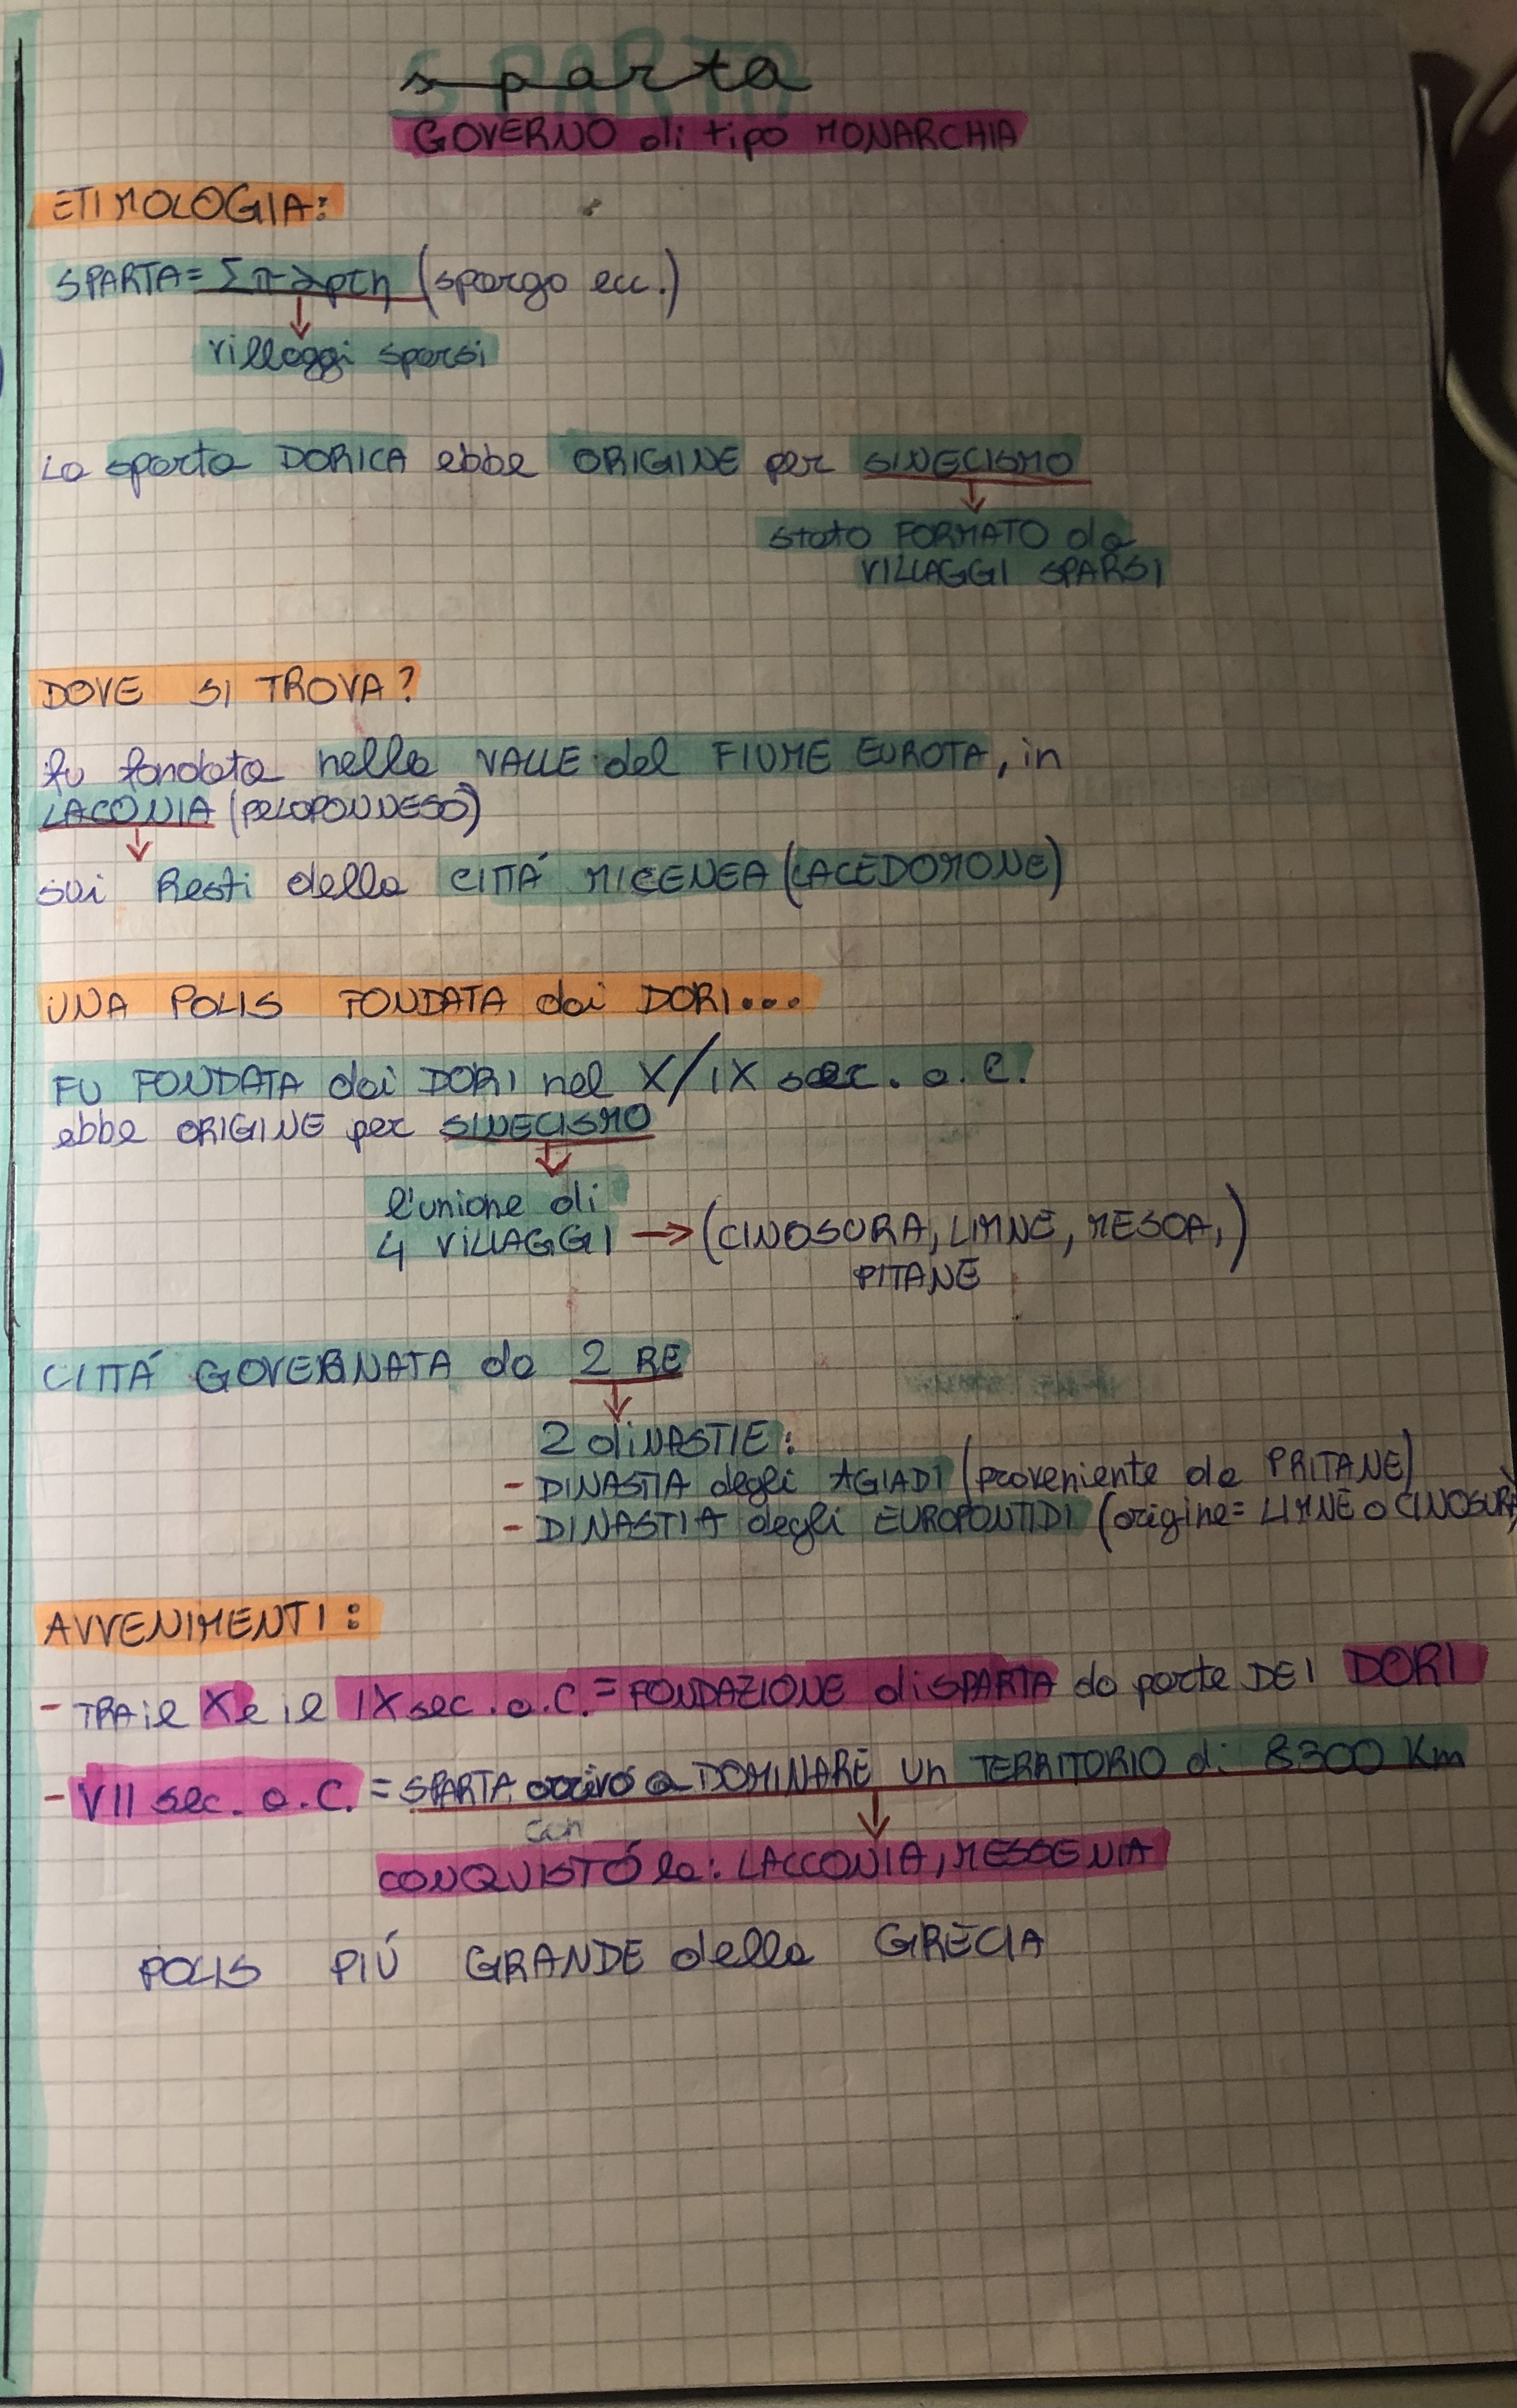 sparta
GOVERNO di tipo MONARCHIA
ETIMOLOGIA:
SPARTA = Σπαρτη (spargo ecc.)
villaggi sparsi
La sparta DORICA ebbe ORIGINE per SINECISMO
stato FORMATO da
VILLAGGI SPARSI
DOVE SI TROVA?
fu fondata nella VALLE del FIUME EUROTA, in
LACONIA (PELOPONNESO)
sui Resti della CITTÁ MICENEA (LACEDOMONE)
UNA POLIS FONDATA dai DORI...
FU FONDATA dai DORI nel X/IX sec. a.C.
ebbe ORIGINE per SINECISMO
l'unione di
4 VILLAGGI → (CINOSURA, LIMNE, MESOA,)
PITANE
CITTÁ GOVERNATA da 2 RE
2 diNASTIE:
- DINASTIA degli AGIADI (proveniente da PRITANE)
- DINASTIA degli EUROPONTIDI (origine = LIMNE o CINOSURA)
AVVENIMENTI:
- TRA il X e il IX sec. a.C. = FONDAZIONE di SPARTA da parte DEI DORI
- VII sec. a.C. = SPARTA arrivó a DOMINARE un TERRITORIO di 8300 Km
con
CONQUISTÓ la: LACCONIA, MESSENIA
POLIS PIÚ GRANDE della GRECIA